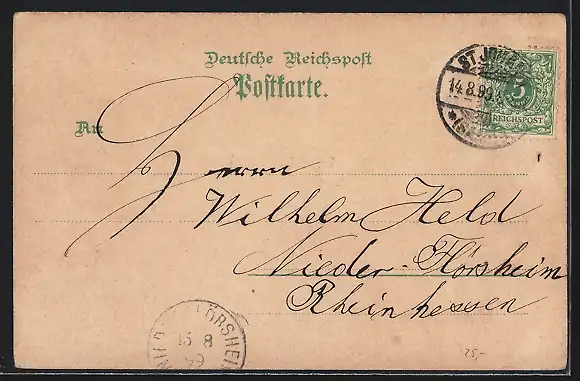 Deutsche Reichspost
Postkarte.
An
Herrn
Wilhelm Held
Nieder-Flörsheim
Rheinhessen
ST. JOH
14.8.99
5
REICHSPOST
NIED LÖRSHEI
15 8
99
25,-